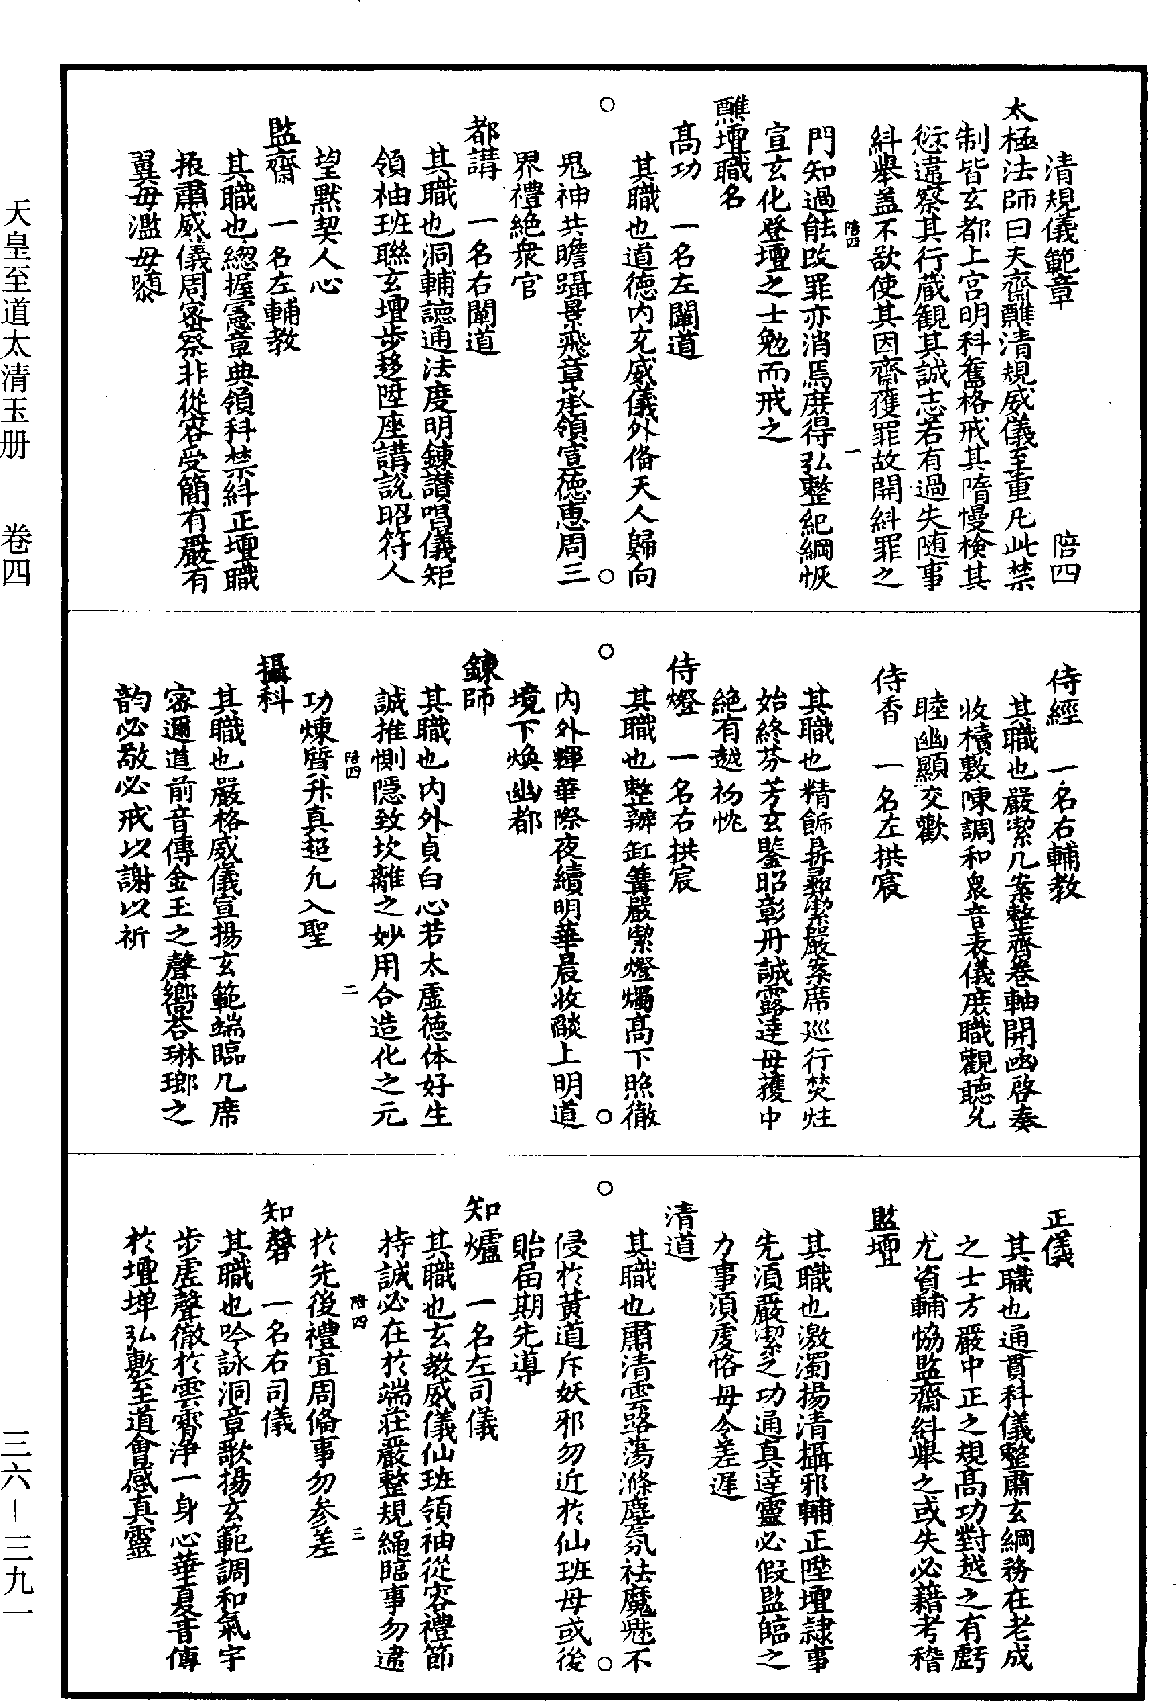 清規儀範章　陪四
太極法師曰夫齋醮清規威儀至重凡此禁
制皆玄都上宮明科舊格戒其隋慢檢其
愆違察其行藏觀其誠志若有過失随事
糾舉蓋不欲使其因齋獲罪故開糾罪之
陪四　一
門知過能改罪亦消焉庶得弘整紀綱恢
宣玄化登壇之士勉而戒之
醮壇職名
高功　一名左闡道
其職也道德内充威儀外俻天人歸向
鬼神共瞻躡景飛章承領宣德惠周三
界禮絶衆官
都講　一名右闡道
其職也洞輔諕通法度明鍊讃唱儀矩
領袖班聯玄壇步趍陞座講說昭符人
望默契人心
監齋　一名左輔教
其職也總握憲章典領科禁糾正壇職
振肅威儀周宻察非從容受簡有嚴有
翼毋濫毋隳
侍經　一名右輔教
其職也嚴潔几案整齊卷軸開函啓奏
收櫝敷陳調和衆音表儀庶職觀聽允
睦幽顯交歡
侍香　一名左拱宸
其職也精飾彞潔嚴案席巡行焚炷
始終芬芳玄鑒昭彰丹誠露達毋獲中
絶有越初忱
侍燈　一名右拱宸
其職也整辨缸篝嚴潔燈燭高下照徹
内外輝華際夜續明華晨收燄上明道
境下煥幽都
鍊師
其職也内外貞白心若太虚德体好生
誠推惻隱致坎離之妙用合造化之元
陪四　二
功煉質升真超凡入聖
攝科
其職也嚴格威儀宣揚玄範端臨几席
宻邇道前音傳金玉之聲嚮荅琳瑯之
韵必敬必戒以謝以祈
正儀
其職也通貫科儀整肅玄綱務在老成
之士方嚴中正之規高功對越之有虧
尤資輔協監齋糾舉之或失必藉考稽
監壇
其職也激濁揚清攝邪輔正陞壇隷事
先須嚴潔之功通真達靈必假監臨之
力事須虔恪毋令差遲
清道
其職也肅清雲路蕩滌塵氛祛魔魅不
侵於黄道斥妖邪勿近於仙班毋或後
貽届期先導
知爐　一名左司儀
其職也玄教威儀仙班領袖從容禮節
持誠必在於端莊嚴整規繩臨事勿逮
陪四　三
於先後禮宜周俻事勿参差
知磬　一名右司儀
其職也吟詠洞章歌揚玄範調和氣宇
步虚聲徹於雲霄净一身心華夏音傳
於壇墠弘敷至道會感真靈
天皇至道太清玉册　卷四
三六—三九一